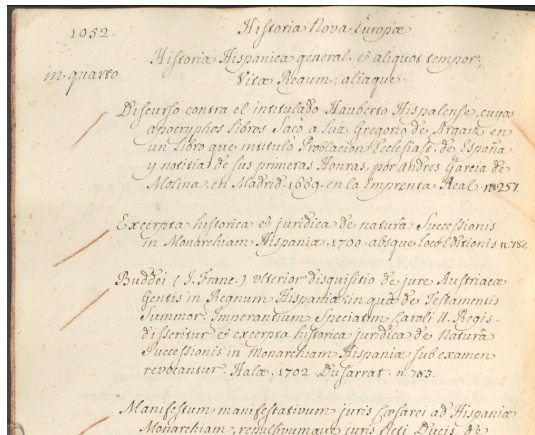 1052.
Historia Nova Europæ
Historia Hispanica general. et aliquot tempor;
in quarto
Vitæ Regum; aliaque.
Discurso contra el intitulado Hauberto Hispalense, cuyos
apocryphos Libros Sacò a Luz Gregorio de Argaiz en
un Libro que intitulo Poblacion Ecclesiast. de España
y notitia de sus primeras Honras, por Andres Garcia de
Molina. en Madrid. 1689. en la Emprenta Real. nº 257.
Excerpta historica et juridica de naturâ Successionis
in Monarchiam Hispaniæ. 1700. absque Loco Editionis n. 782
Buddei (J. Franc.) ulterior disquisitio de jure Austriacæ
Gentis in Regnum Hispaniæ: in quâ de Testamentis
Summor. Imperantium Speciatim Caroli II. Regis
disseritur et excerpta historica juridica de Naturâ
Successionis in Monarchiam Hispaniæ sub examen
revocantur. Halæ. 1702. Dusarrat. n. 783.
Manifestum manifestativum juris Cæsarei ad Hispaniæ
Monarchiam, repulsivumque juris ficti Ducis de